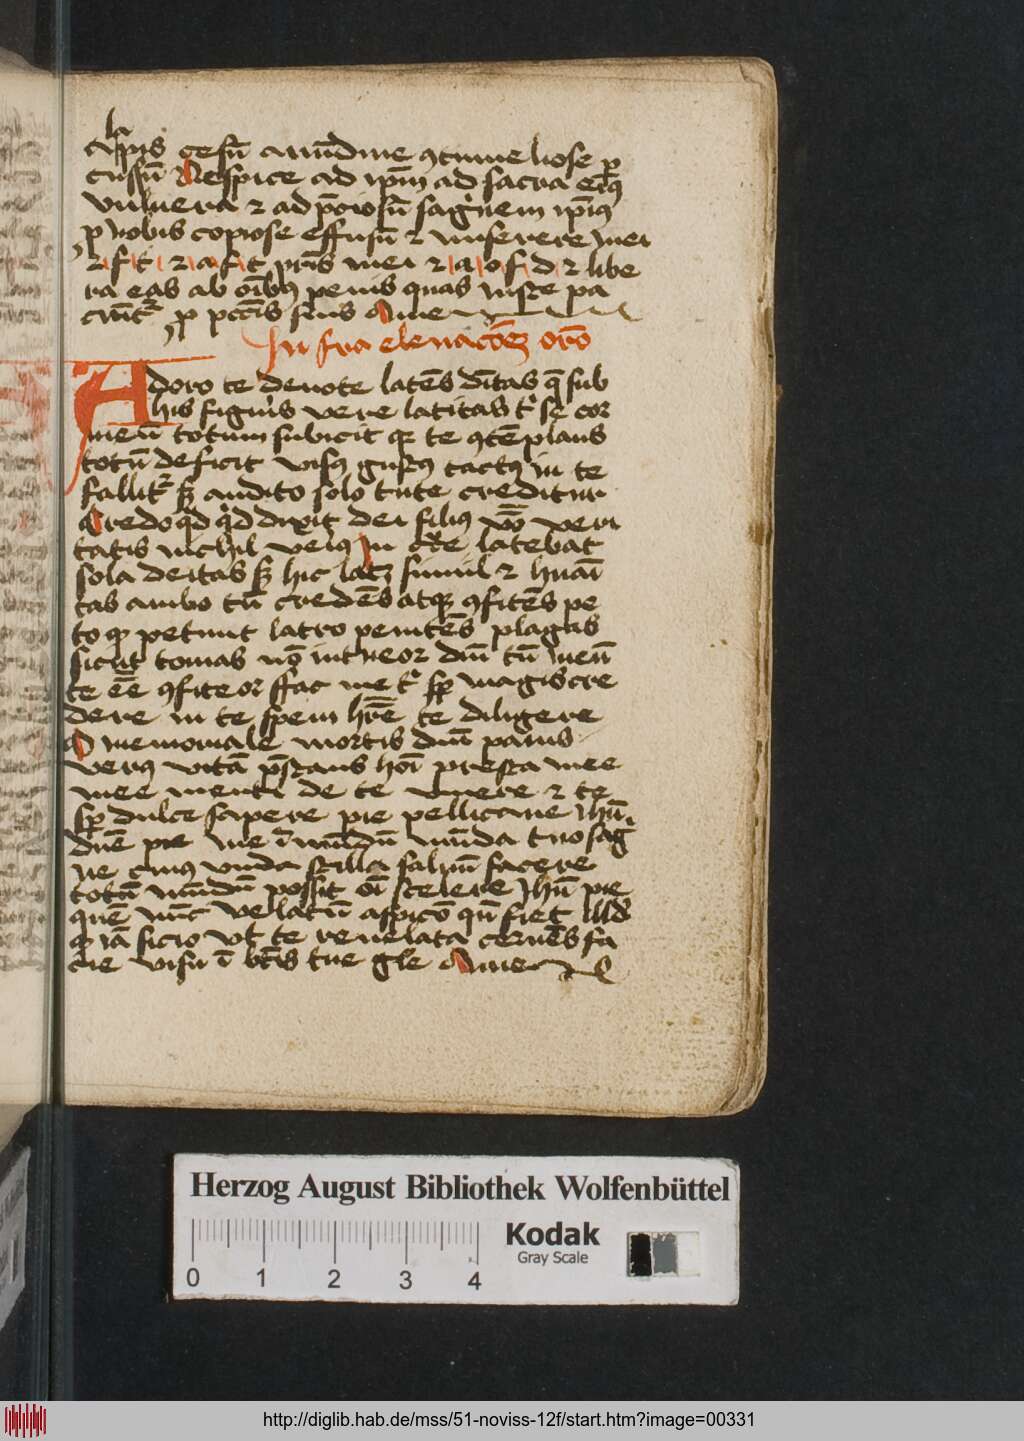 la
cusū Respice ad ip̄m ad sacra eiꝰ
vulnera ⁊ ad p̄ciosū sagīnem ip̄iꝰ
ꝓ nobis copiose effusū ⁊ miserere mei
⁊ f t ⁊ a f t pr̄is mei ⁊ a o f d ⁊ libe
ra eas ab oībꝰ penis quas iuste pa
ꝓ pctīs suis Ame
In fra eleuacōeꝫ orō
Adoro te deuote latēs dītas q̄ sub
his figuris vere latitas t' se cor
meū totum subicit qꝛ te ꝯtēplans
totū deficit visꝰ gustꝰ tactꝰ in te
fallit' sꝫ audito solo tute creditur
Credo qd qͥd dixit dei filiꝰ vᵒ̄ veri
tatis nichil veiꝰ In cͬe latebat
sola deitas sꝫ hic latꝫ simul ⁊ huāi
tas ambo tn̄ credēs atqꝫ ꝯfitēs pe
to qͦ petiuit latro penitēs plagas
sicut tomas nō intueor dm̄ tn̄ meū
te eē ꝯfiteor ffac me t' sꝑ magis cre
dere in te spem hr̄e te diligere
O memoriale mortis dnī panis
verꝰ vitā p̄stans hoī presta mee
mee menti de te viuere ⁊ te
sꝑ dulce sapere pie pellicane Ihū
dn̄e pie me ī mūdū mūda tuo sāg
ne cuiꝰ vnda stilla saluū facere
totū mūdū possit oī scelere Ihū pie
quē nūc velatū aspicō qn̄ fiet illd
qͦ iā sicio vt te reuelata cernēs fa
cie visu ī btīs tue gl̄e Ame
Herzog August Bibliothek Wolfenbüttel
Kodak
Gray Scale
0 1 2 3 4
http://diglib.hab.de/mss/51-noviss-12f/start.htm?image=00331